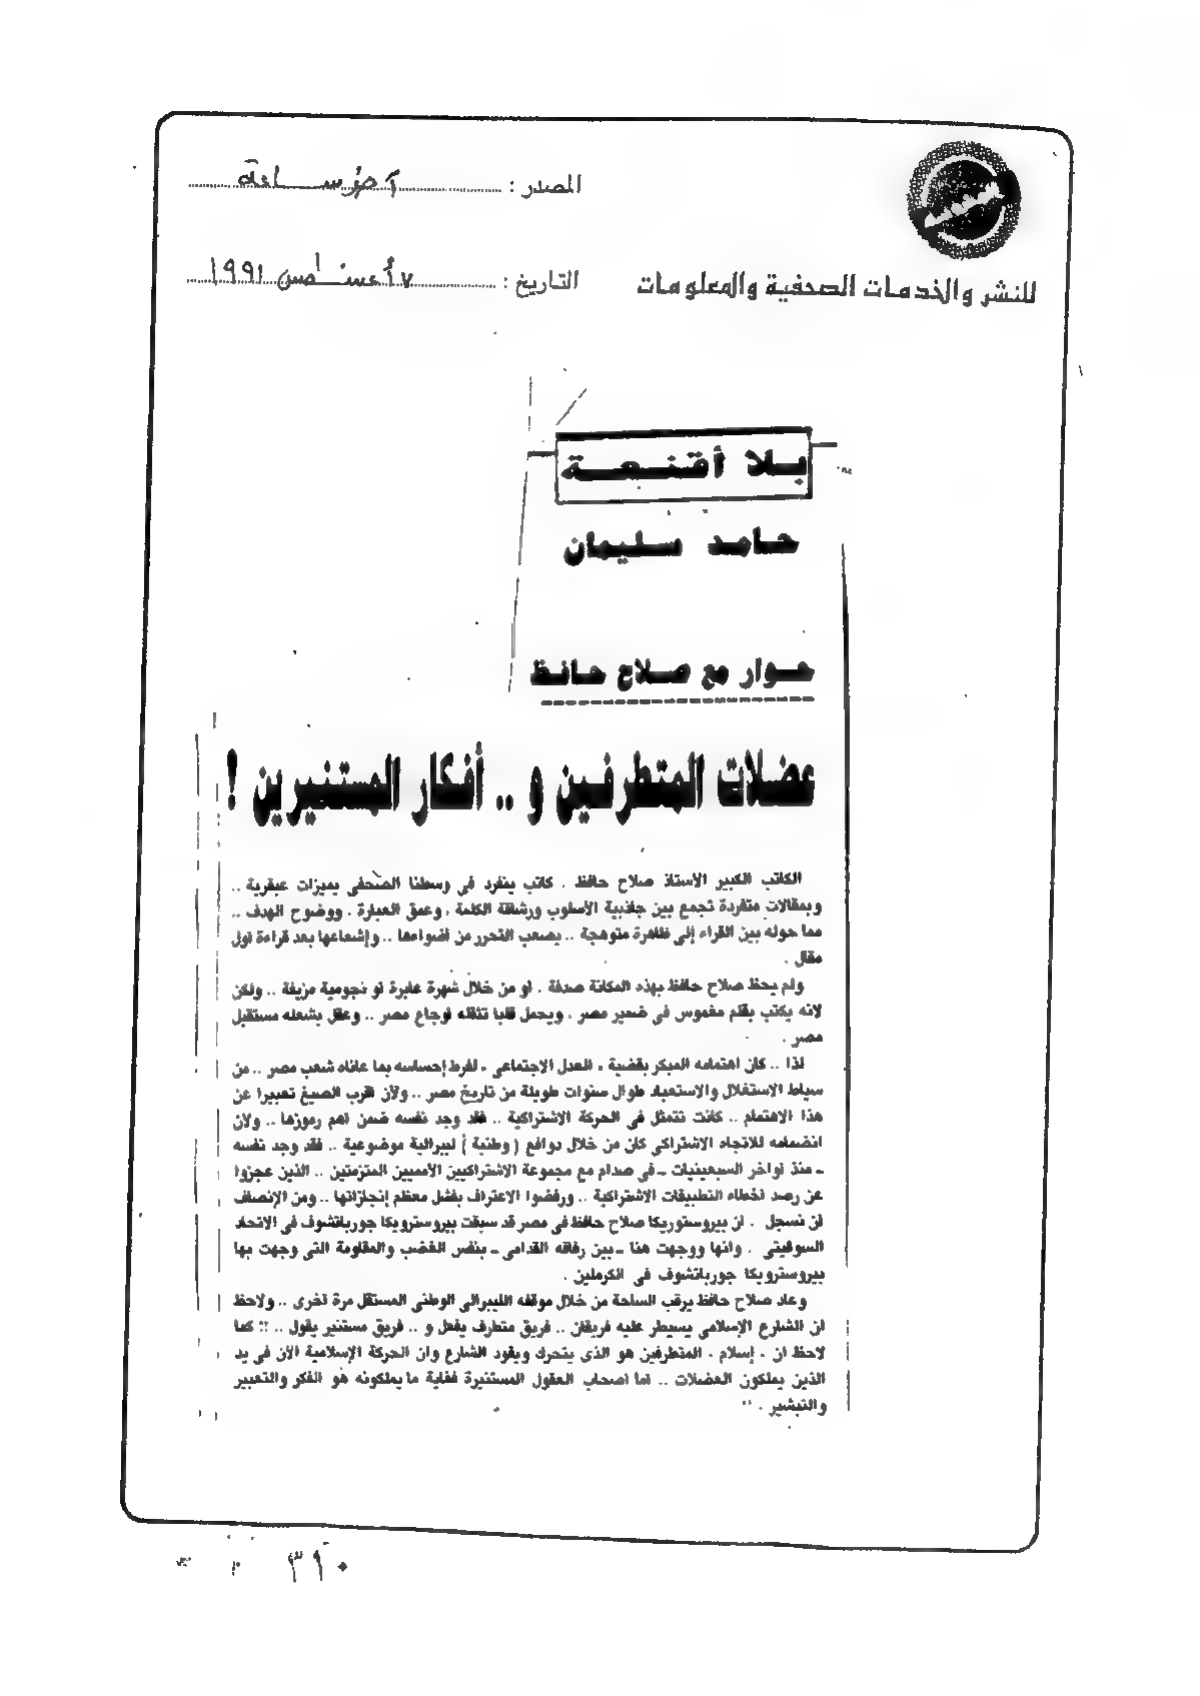 المصدر : آخر ساعة
للنشر والخدمات الصحفية والمعلومات
التاريخ : ٧ أغسطس ١٩٩١
بلا أقنعة
حامد سليمان
حوار مع صلاح حافظ
عضلات المتطرفين و .. أفكار المستنيرين ؟
الكاتب الكبير الأستاذ صلاح حافظ . كاتب ينفرد في وسطنا الصحفى بميزات عبقرية ..
وبمقالات متفردة تجمع بين جاذبية الأسلوب ورشاقة الكلمة ، وعمق العبارة ، ووضوح الهدف ..
مما حوله بين القراء إلى ظاهرة متوهجة .. يصعب التحرر من أضواءها .. وإشعاعها بعد قراءة اول
مقال .
ولم يحظ صلاح حافظ بهذه المكانة صدفة . او من خلال شهرة عابرة او نجومية مزيفة .. ولكن
لانه يكتب بقلم مغموس في ضمير مصر ، ويحمل قلبا تثقله اوجاع مصر .. وعقل يشغله مستقبل
مصر .
لذا .. كان اهتمامه المبكر بقضية ، العدل الاجتماعى ، لفرط إحساسه بما عاناه شعب مصر .. من
سياط الاستغلال والاستعباد طوال سنوات طويلة من تاريخ مصر .. ولأن اقرب الصيغ تعبيرا عن
هذا الاهتمام .. كانت تتمثل في الحركة الاشتراكية .. فقد وجد نفسه ضمن اهم رموزها .. ولأن
انضمامه للاتجاه الاشتراكى كان من خلال دوافع ( وطنية ) ليبرالية موضوعية .. فقد وجد نفسه
ـ منذ اواخر السبعينيات ـ فى صدام مع مجموعة الاشتراكيين الأمميين المتزمتين .. الذين عجزوا
عن رصد اخطاء التطبيقات الاشتراكية .. ورفضوا الاعتراف بفشل معظم إنجازاتها .. ومن الإنصاف
ان نسجل . ان بيروستوريكا صلاح حافظ فى مصر قد سبقت بيروسترويكا جورباتشوف فى الاتحاد
السوفيتى . وانها ووجهت هنا ـ بين رفاقه القدامى ـ بنفس الغضب والمقاومة التى وجهت بها
بيروسترويكا جورباتشوف فى الكرملين .
وعاد صلاح حافظ يرقب الساحة من خلال موقفه الليبرالى الوطنى المستقل مرة اخرى .. ولاحظ
ان الشارع الإسلامى يسيطر عليه فريقان .. فريق متطرف يفعل و .. فريق مستنير يقول .. !! كما
لاحظ ان ، إسلام ، المتطرفين هو الذى يتحرك ويقود الشارع وان الحركة الإسلامية الآن فى يد
الذين يملكون العضلات .. اما اصحاب العقول المستنيرة فغاية ما يملكونه هو الفكر والتعبير
والتبشير .
٣٩٠